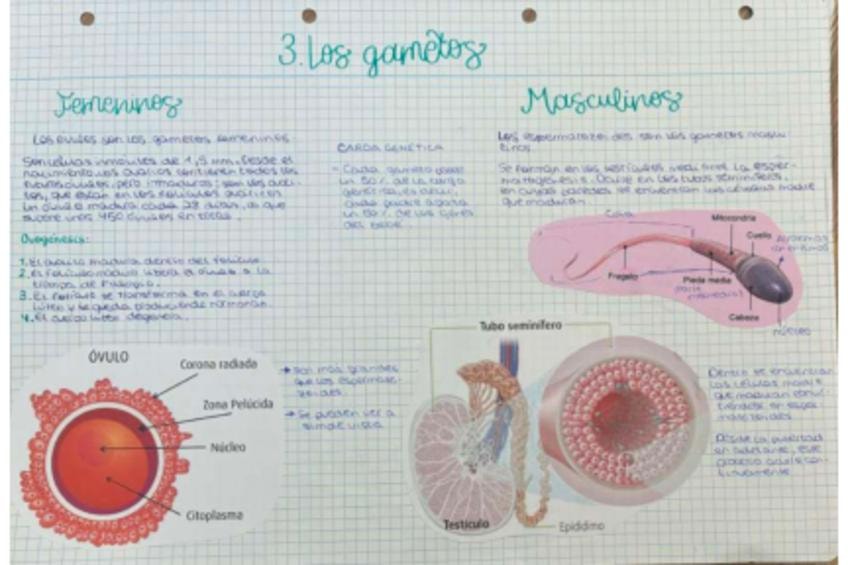 3. Los gametos
Femeninos
Los óvulos son los gametos femeninos.
Son células inmóviles de 1,5 mm. Desde el
nacimiento los ovarios contienen todos los
óvulos, pero inmaduros
que están en los folículos
Un óvulo madura cada 28 días, lo que
supone unos 450 óvulos en total.
Ovogénesis:
1. El óvulo madura dentro del folículo
2. El folículo maduro libera el óvulo a la
trompa de Falopio.
3. El folículo se transforma en el cuerpo
lúteo y se queda produciendo hormonas.
4. El cuerpo lúteo degenera.
ÓVULO
Corona radiada
Zona Pelúcida
Núcleo
Citoplasma
→ Son más grandes
que los espermato-
zoides.
→ Se pueden ver a
simple vista
CARGA GENÉTICA
- Cada gameto posee
un 50% de la carga
genética, es decir,
cada padre aporta
un 50% de los genes
del bebé.
Masculinos
Los espermatozoides son los gametos mascu-
linos.
Se forman en los testículos
en los tubos seminíferos,
en cuyas paredes se encuentran las células madre
que maduran.
Cola
Mitocondria
Cuello
Flagelo
Pieza media
Cabeza
núcleo
Tubo seminífero
Testículo
Epidídimo
Dentro se encuentran
las células madre
que maduran convir-
tiéndose en esper-
matozoides.
Desde la pubertad
en adelante, este
proceso ocurre con-
tinuamente.